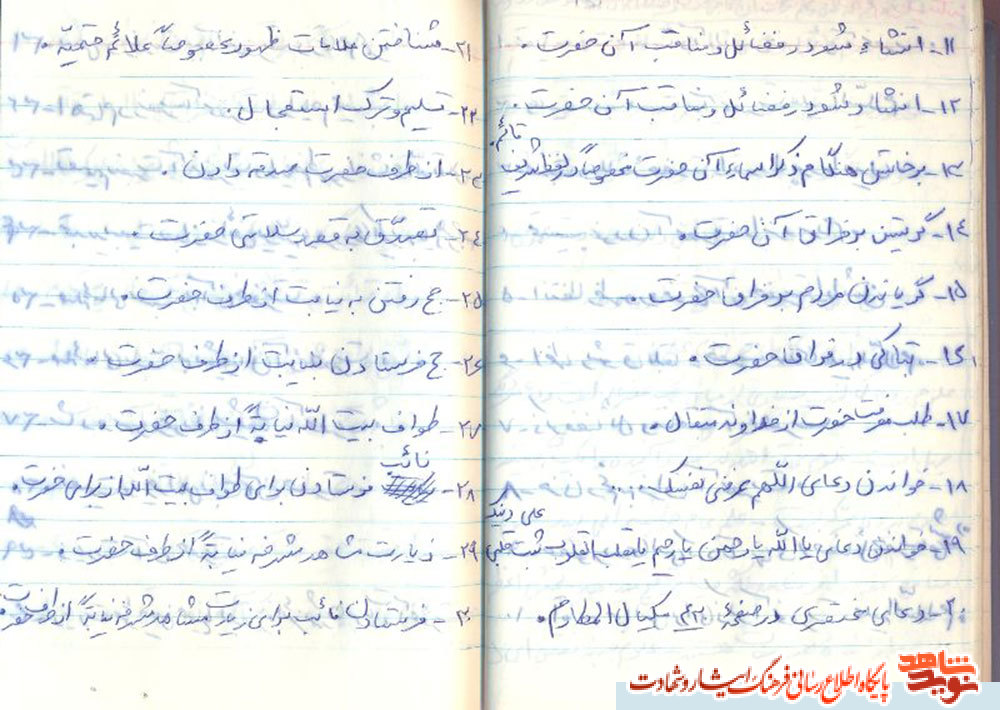 ۱۱- انشاء شعر در فضائل و مناقب آن حضرت.
۱۲- انشاد شعر در فضائل و مناقب آن حضرت.
۱۳- برخاستن هنگام ذکر اسماء آن حضرت مخصوصاً در لفظ شریف قائم.
۱۴- گریستن بر فراق آن حضرت.
۱۵- گریاندن مردم بر فراق حضرت.
۱۶- تباکی در فراق حضرت.
۱۷- طلب معرفت حضرت از خداوند متعال.
۱۸- خواندن دعای اللّهم عرفنی نفسک . . .
۱۹- خواندن دعای یا اللّه یا رحمن یا رحیم یا مقلب القلوب ثبت قلبی علی دینک
۲۰- دعای مختصری در صفحهٔ مکیال المکارم.
۲۱- شناختن علامات ظهور، خصوصاً علائم حتمیّه.
۲۲- تسلیم و ترک استعجال.
۲۳- از طرف حضرت صدقه دادن.
۲۴- تصدّق به قصد سلامتی حضرت.
۲۵- حج رفتن به نیابت از طرف حضرت.
۲۶- حج فرستادن بنایب از طرف حضرت.
۲۷- طواف بیت اللّه نیابةً از طرف حضرت.
۲۸- نائب فرستادن برای طواف بیت اللّه از برای حضرت.
۲۹- زیارت مشاهد مشرفه نیابةً از طرف حضرت.
۳۰- فرستادن نائب برای زیارت مشاهد مشرفه نیابةً از طرف حضرت
نوید شاهد
پایگاه اطلاع رسانی فرهنگ ایثار و شهادت